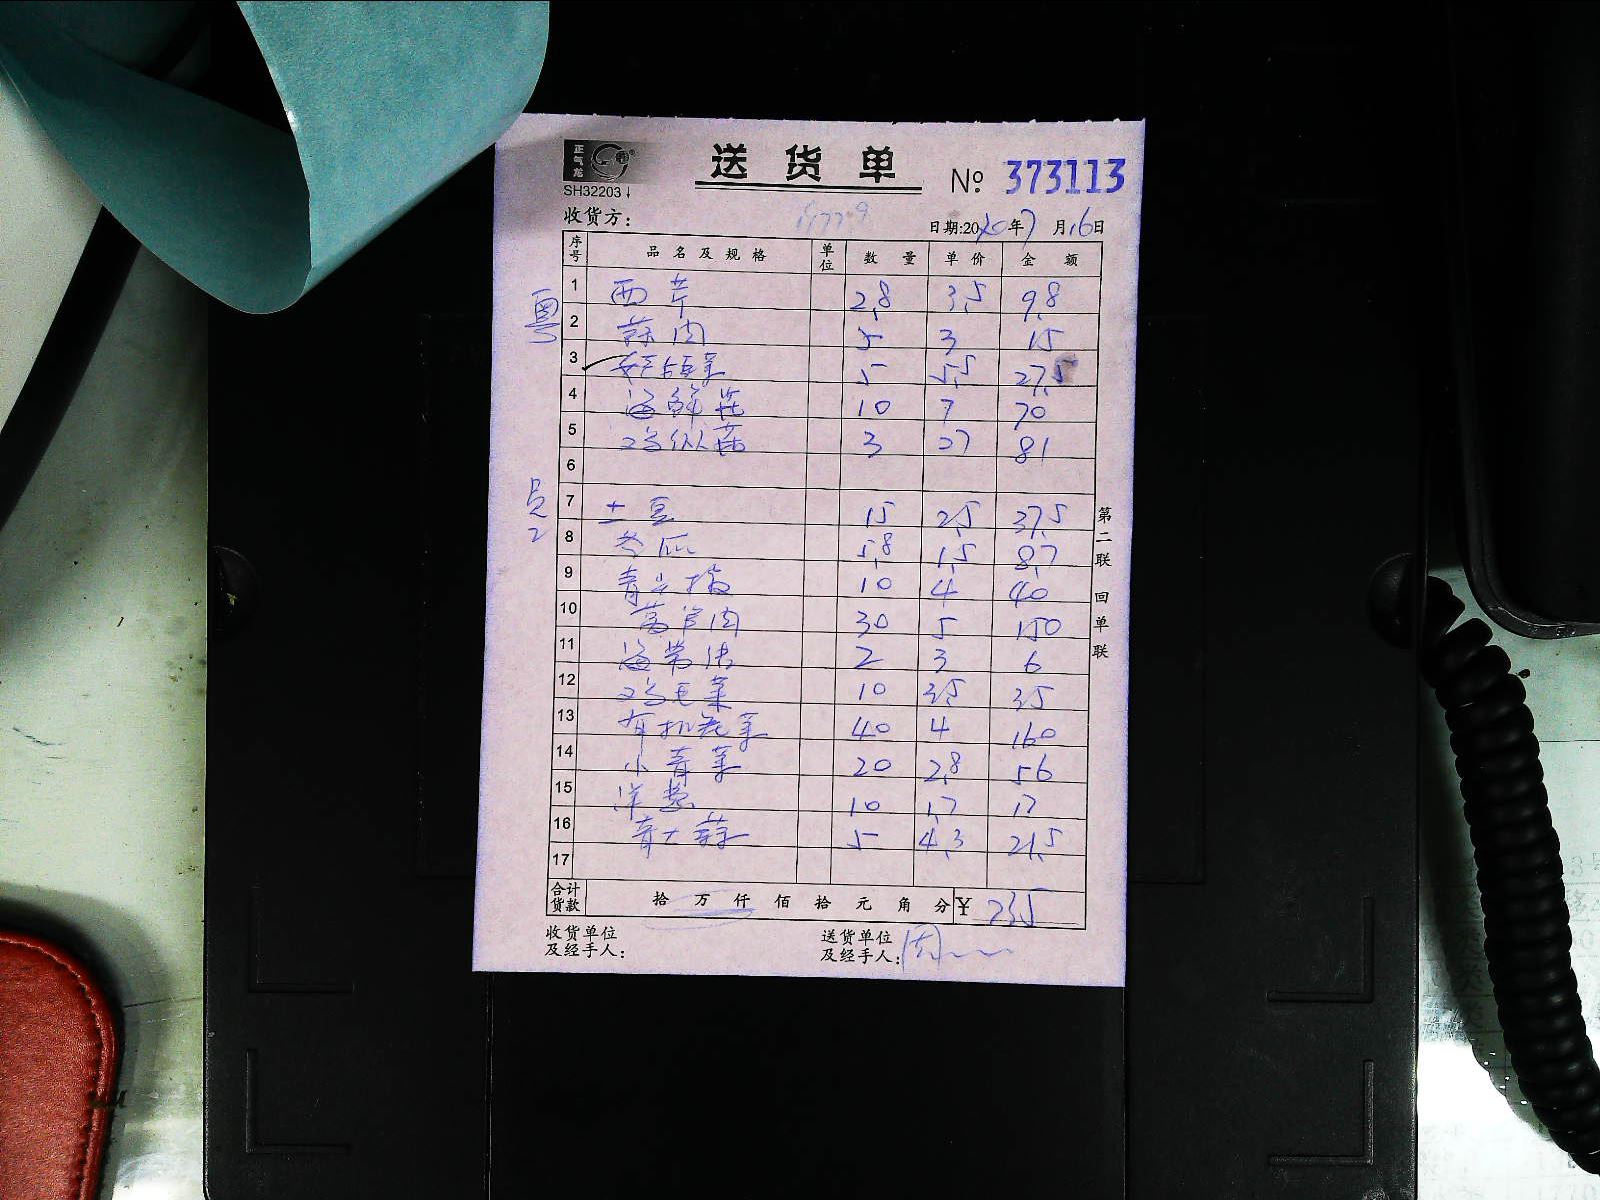 正气龙
送货单
№ 373113
SH32203
收货方:
日期:2020年7月16日
序号 品名及规格 单位 数量 单价 金额
粤
1 西芹 2.8 3.5 9.8
2 蒜肉 5 3 15
3 5 5.5 27.5
4 海鲜菇 10 7 70
5 鸡纵菌 3 27 81
6
员2
7 土豆 15 2.5 37.5
8 5.8 1.5 8.7
9 青尖椒 10 4 40
10 莴笋肉 30 5 150
11 海带结 2 3 6
12 鸡毛菜 10 3.5 35
13 有机花菜 40 4 160
14 小青菜 20 2.8 56
15 洋葱 10 1.7 17
16 青大蒜 5 4.3 21.5
17
合计货款 拾万仟佰拾元角分 ¥ 735
收货单位及经手人:
送货单位及经手人: 周
第二联 回单联